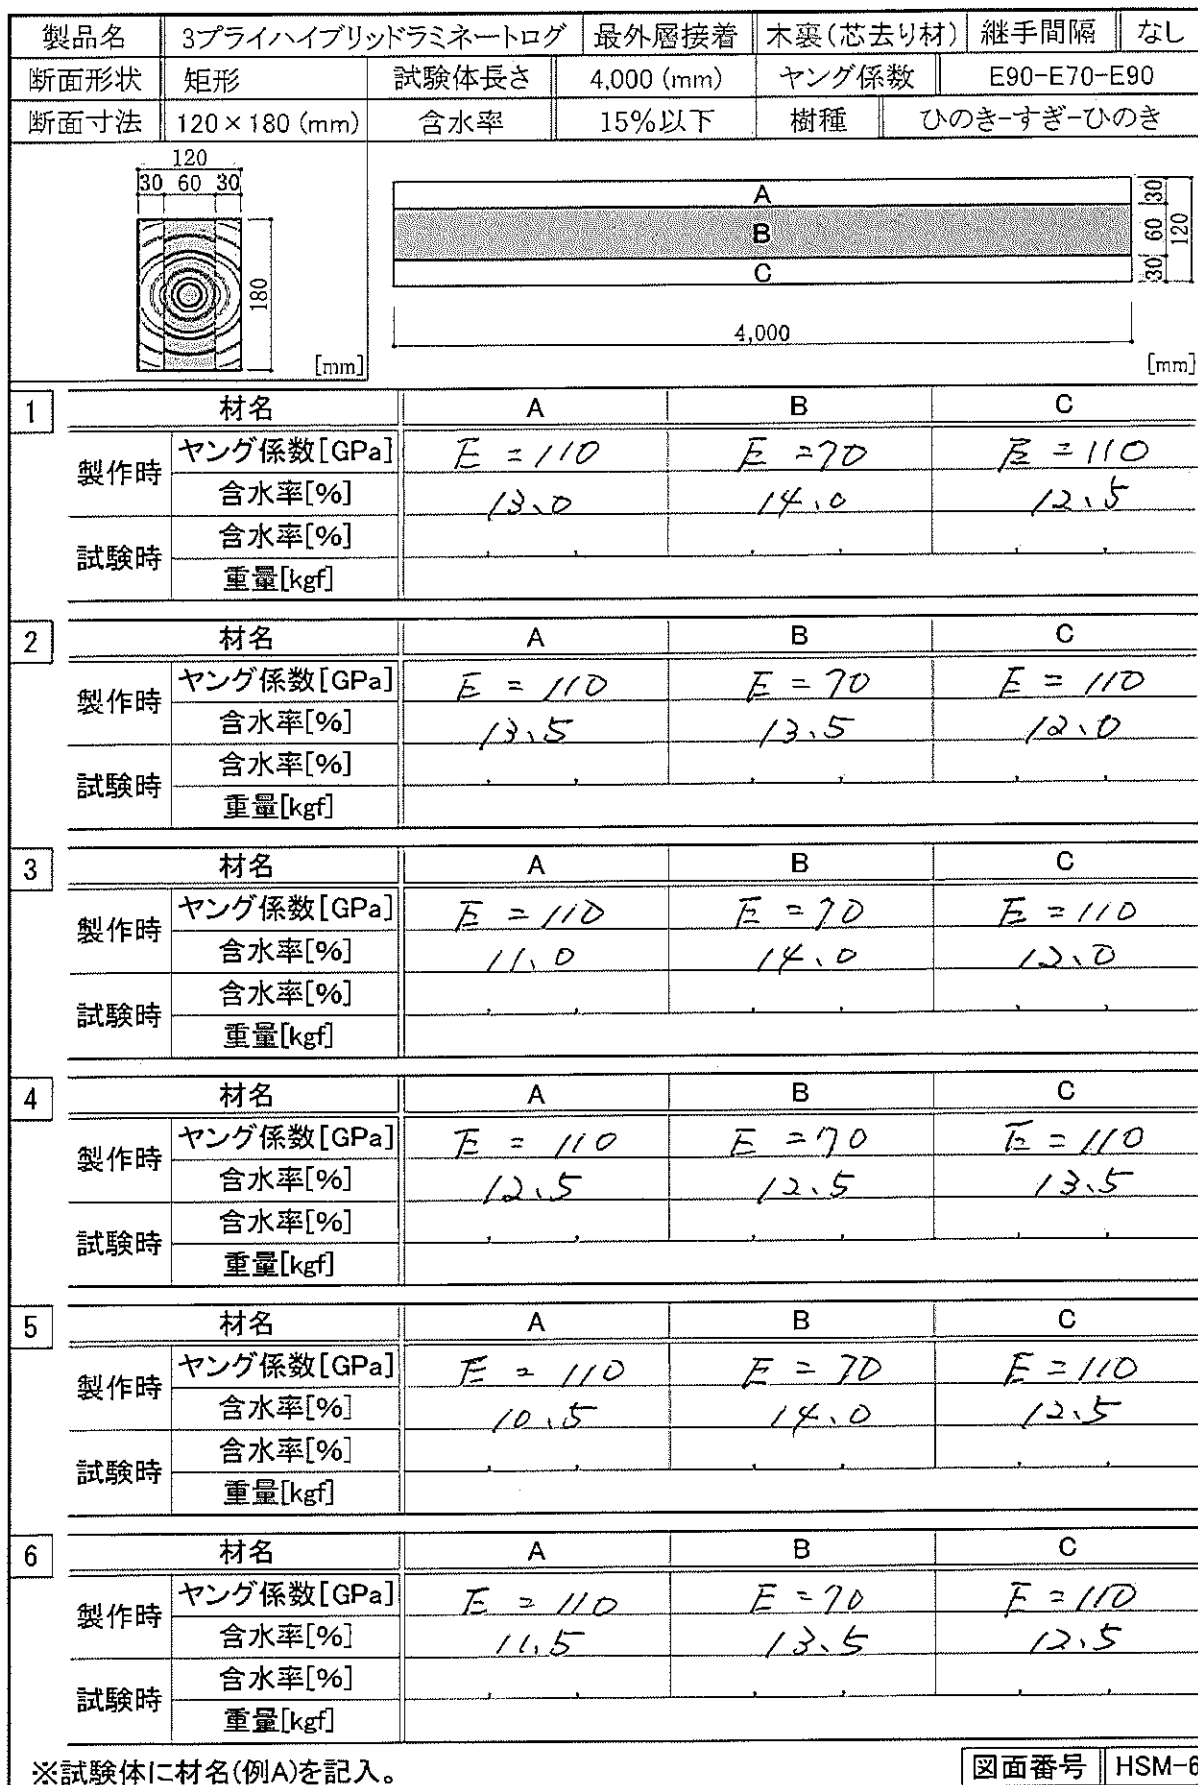 製品名 3プライハイブリッドラミネートログ 最外層接着 木裏(芯去り材) 継手間隔 なし
断面形状 矩形 試験体長さ 4,000 (mm) ヤング係数 E90-E70-E90
断面寸法 120×180 (mm) 含水率 15%以下 樹種 ひのき-すぎ-ひのき
120
30 60 30
180
[mm]
A
B
C
30 60 30
120
4,000
[mm]
1 材名 A B C
製作時 ヤング係数[GPa] E=110 E=70 E=110
含水率[%] 13.0 14.0 12.5
試験時 含水率[%] , , , , , ,
重量[kgf]
2 材名 A B C
製作時 ヤング係数[GPa] E=110 E=70 E=110
含水率[%] 13.5 13.5 12.0
試験時 含水率[%] , , , , , ,
重量[kgf]
3 材名 A B C
製作時 ヤング係数[GPa] E=110 E=70 E=110
含水率[%] 11.0 14.0 12.0
試験時 含水率[%] , , , , , ,
重量[kgf]
4 材名 A B C
製作時 ヤング係数[GPa] E=110 E=70 E=110
含水率[%] 12.5 12.5 13.5
試験時 含水率[%] , , , , , ,
重量[kgf]
5 材名 A B C
製作時 ヤング係数[GPa] E=110 E=70 E=110
含水率[%] 10.5 14.0 12.5
試験時 含水率[%] , , , , , ,
重量[kgf]
6 材名 A B C
製作時 ヤング係数[GPa] E=110 E=70 E=110
含水率[%] 11.5 13.5 12.5
試験時 含水率[%] , , , , , ,
重量[kgf]
※試験体に材名(例A)を記入。 図面番号 HSM-6